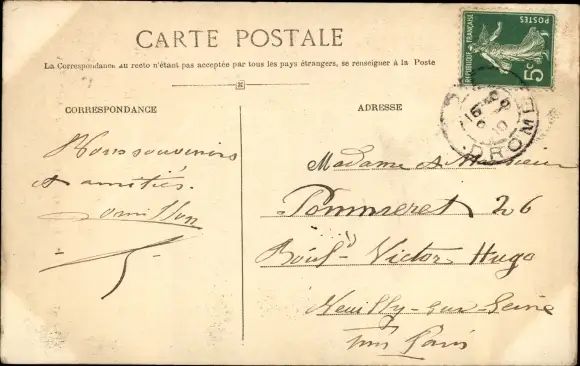 CARTE POSTALE
La Correspondance au recto n'étant pas acceptée par tous les pays étrangers, se renseigner à la Poste
CORRESPONDANCE
ADRESSE
Bons souvenirs
et amitiés.
Madame et Monsieur
Pommeret 26
Bould Victor Hugo
Neuilly-sur-Seine
Paris
POSTES
REPUBLIQUE FRANÇAISE
5c
DROME